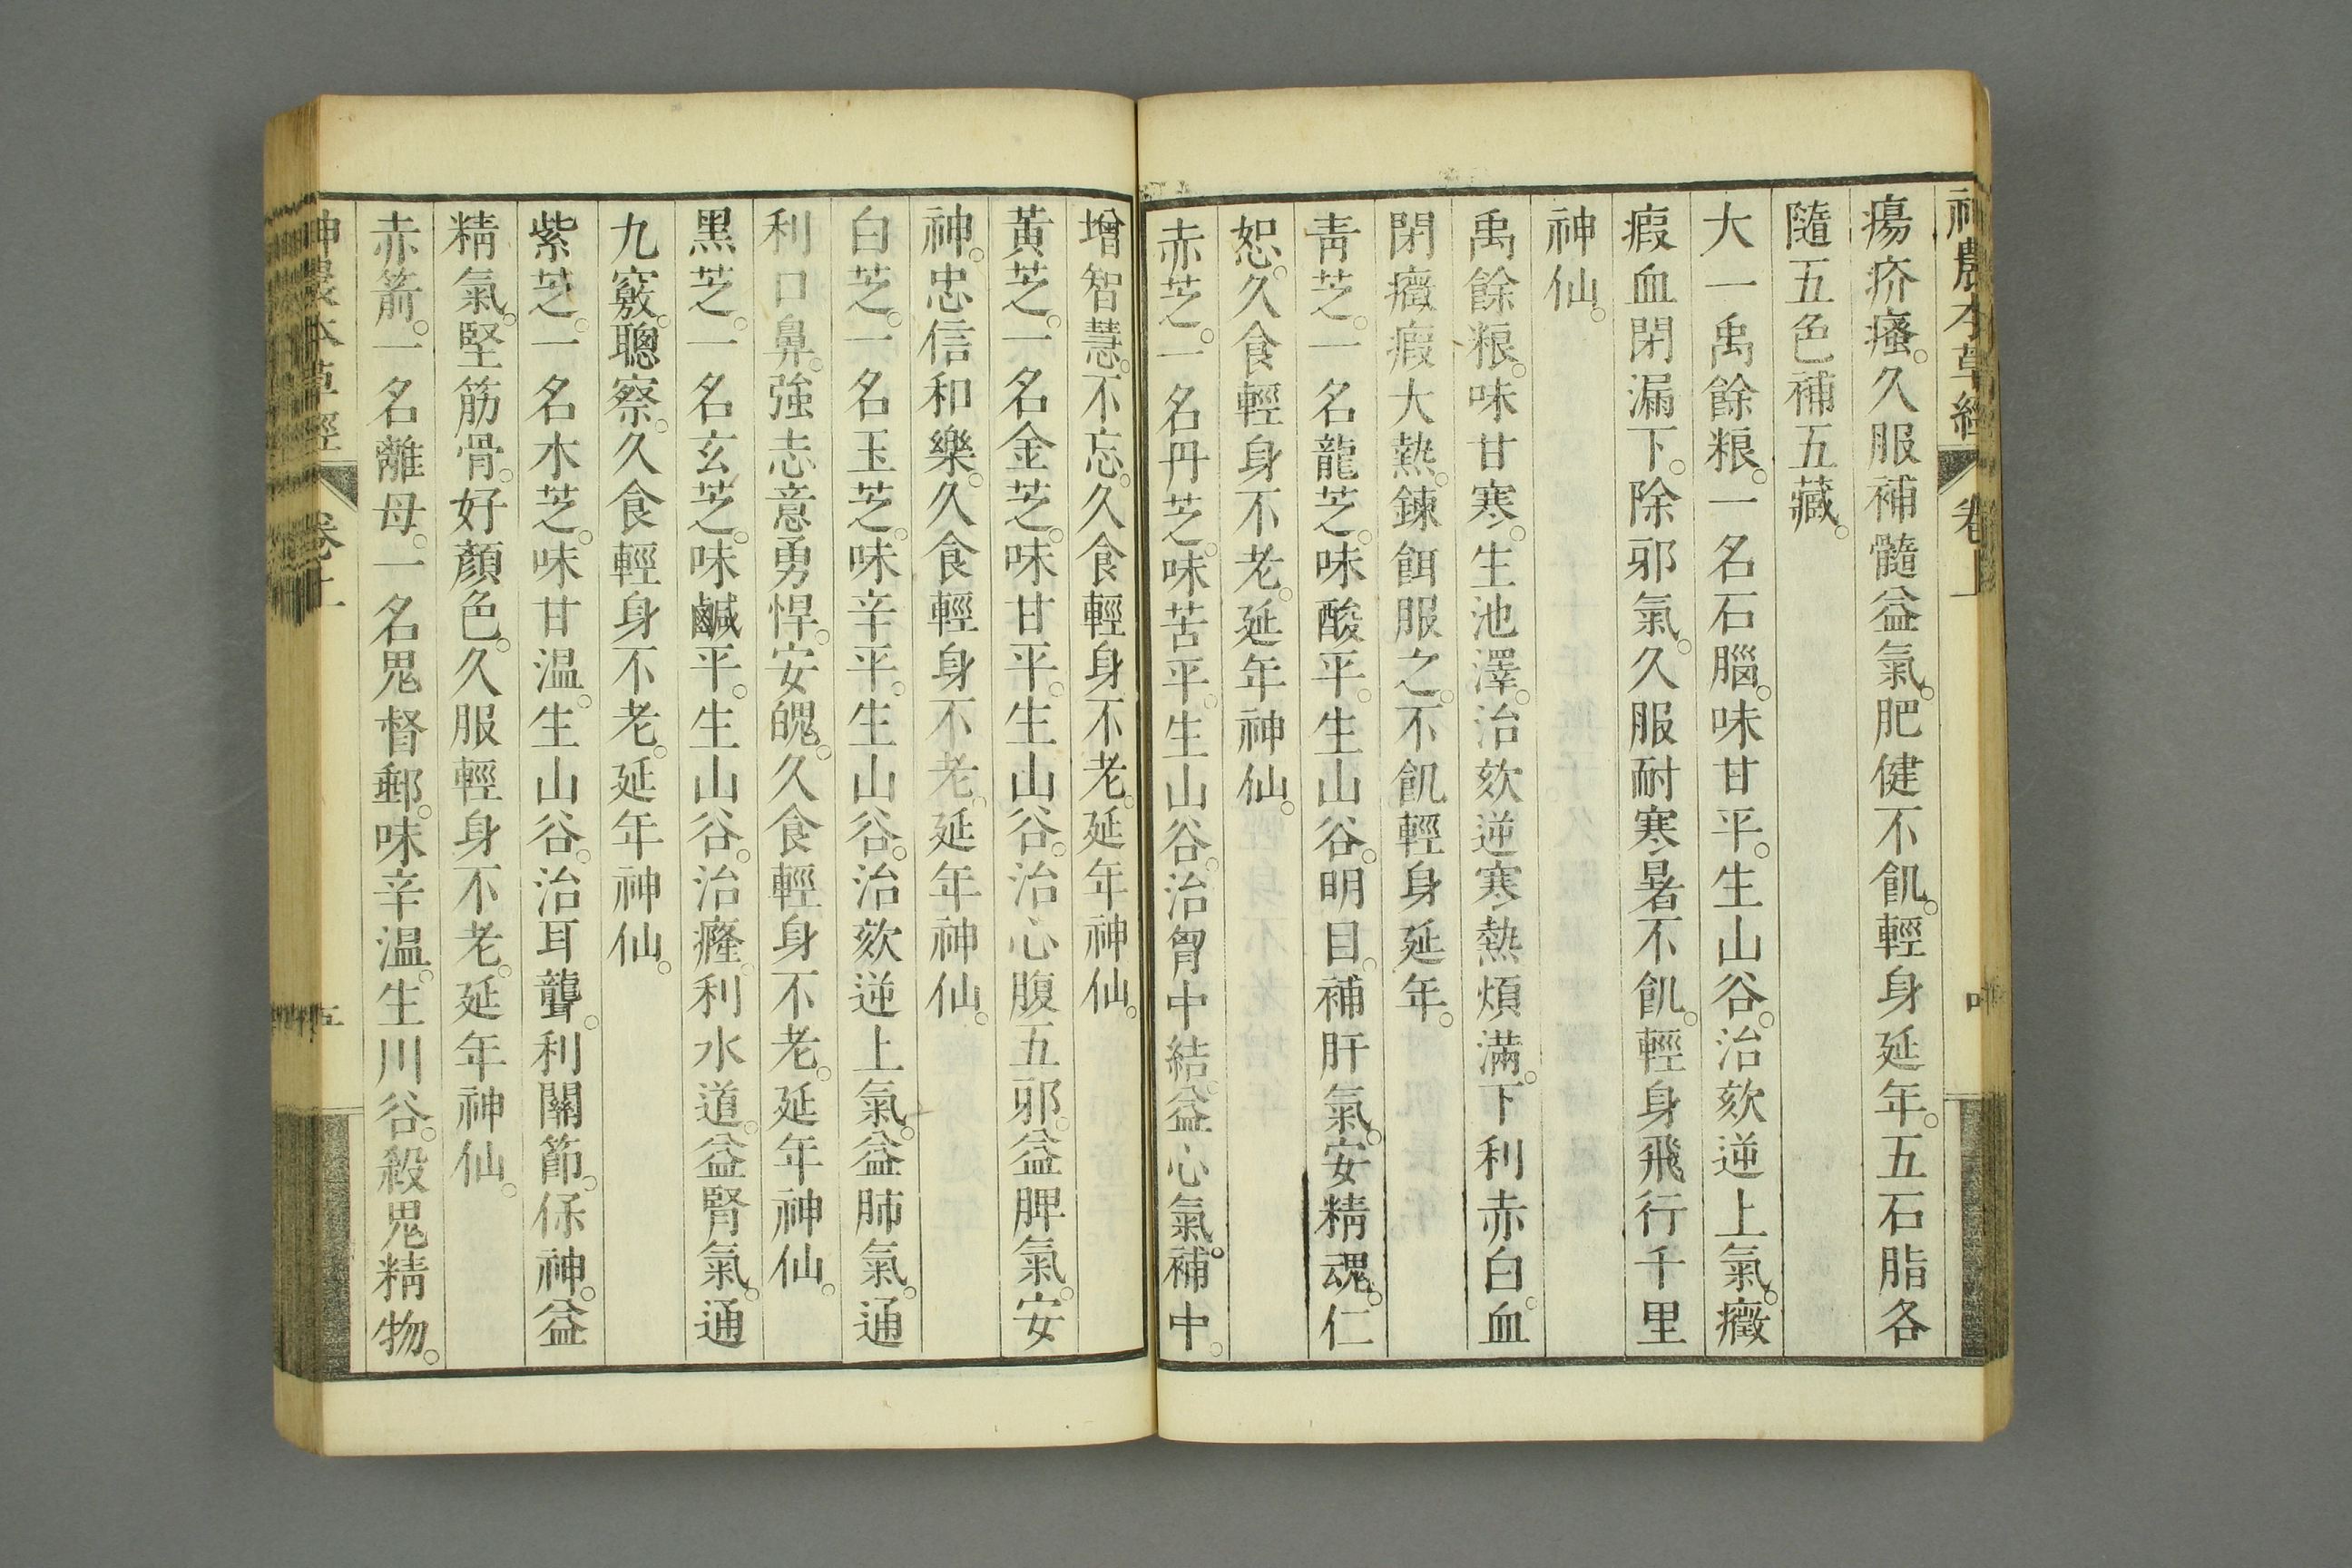 神農本草經 卷上 四
瘍疥瘙。久服補髓益氣。肥健不飢。輕身延年。五石脂各
隨五色補五藏。
大一禹餘粮。一名石腦。味甘平。生山谷。治欬逆上氣。癥
瘕血閉漏下。除邪氣。久服耐寒暑不飢。輕身飛行千里
神仙。
禹餘粮。味甘寒。生池澤。治欬逆寒熱煩滿。下利赤白。血
閉癥瘕大熱。鍊餌服之。不飢輕身延年。
青芝。一名龍芝。味酸平。生山谷。明目。補肝氣。安精魂。仁
恕。久食輕身不老。延年神仙。
赤芝。一名丹芝。味苦平。生山谷。治胷中結。益心氣。補中。
增智慧。不忘。久食輕身不老。延年神仙。
黃芝。一名金芝。味甘平。生山谷。治心腹五邪。益脾氣。安
神。忠信和樂。久食輕身不老。延年神仙。
白芝。一名玉芝。味辛平。生山谷。治欬逆上氣。益肺氣。通
利口鼻。強志意勇悍。安魄。久食輕身不老。延年神仙。
黑芝。一名玄芝。味鹹平。生山谷。治癃。利水道。益腎氣。通
九竅。聰察。久食輕身不老。延年神仙。
紫芝。一名木芝。味甘温。生山谷。治耳聾。利關節。保神。益
精氣。堅筋骨。好顏色。久服輕身不老。延年神仙。
赤箭。一名離母。一名鬼督郵。味辛温。生川谷。殺鬼精物。
神農本草經 卷上 五